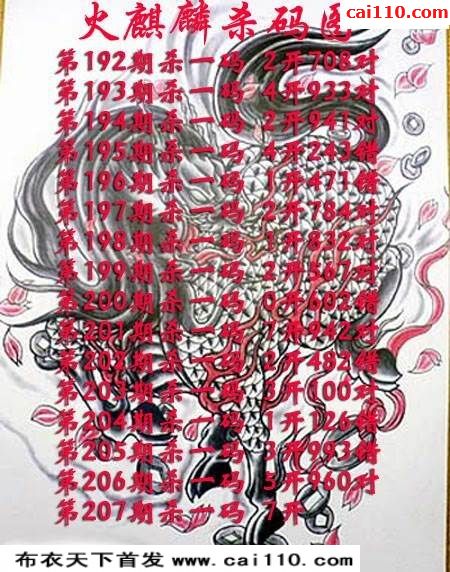 cai110.com
火麒麟杀码图
第192期杀一码 2开708对
第193期杀一码 4开933对
第194期杀一码 2开941对
第195期杀一码 4开243错
第196期杀一码 1开471错
第197期杀一码 2开784对
第198期杀一码 1开832对
第199期杀一码 2开567对
第200期杀一码 0开602错
第201期杀一码 7开942对
第202期杀一码 2开482错
第203期杀一码 3开100对
第204期杀一码 1开126错
第205期杀一码 3开993错
第206期杀一码 5开960对
第207期杀一码 7开
布衣天下首发 www.cai110.com